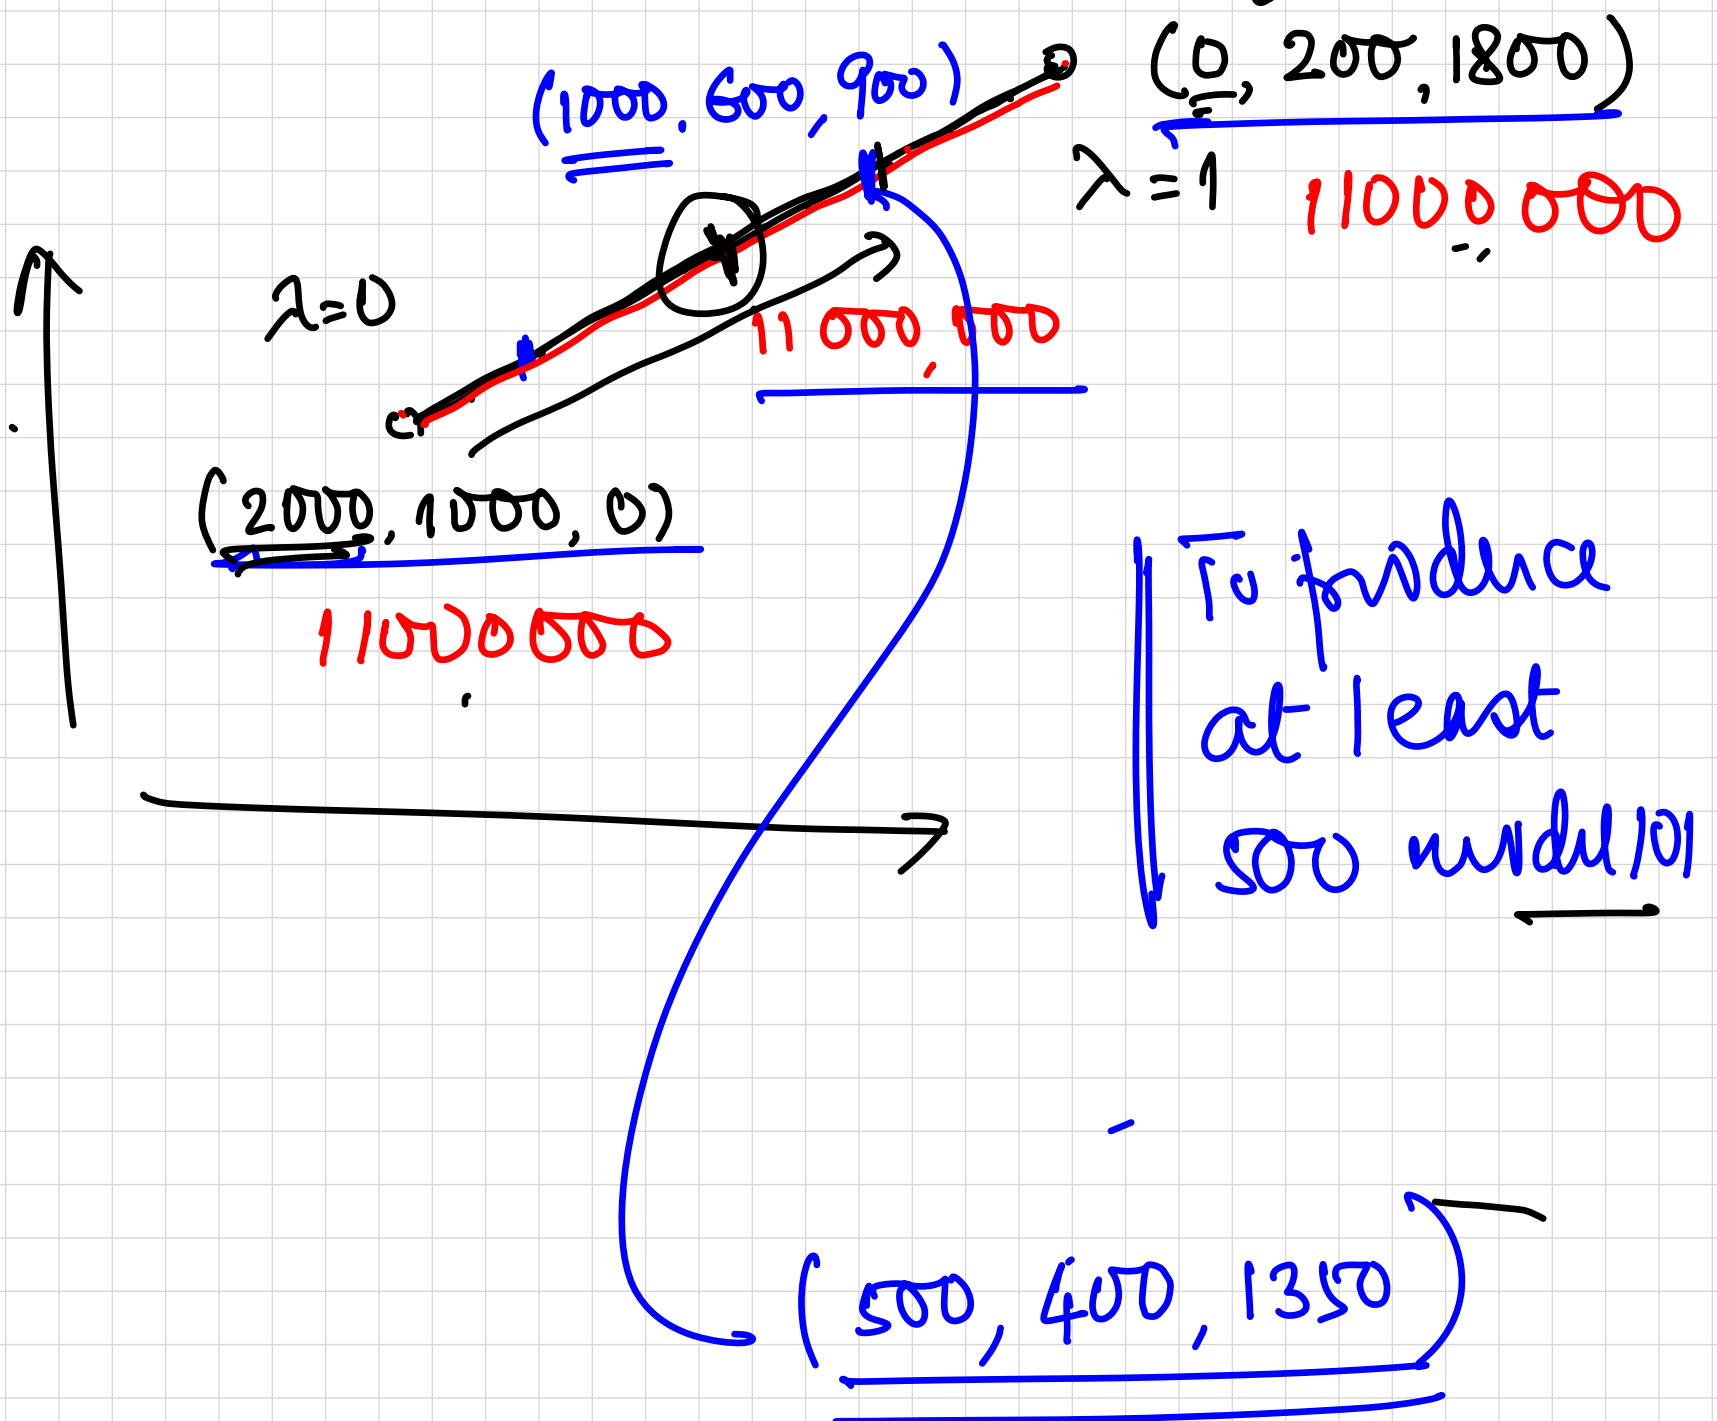 (1000, 600, 900)
(0, 200, 1800)
λ = 1
11000000
λ = 0
11000,000
(2000, 1000, 0)
11000000
To produce
at least
500 model 101
(500, 400, 1350)